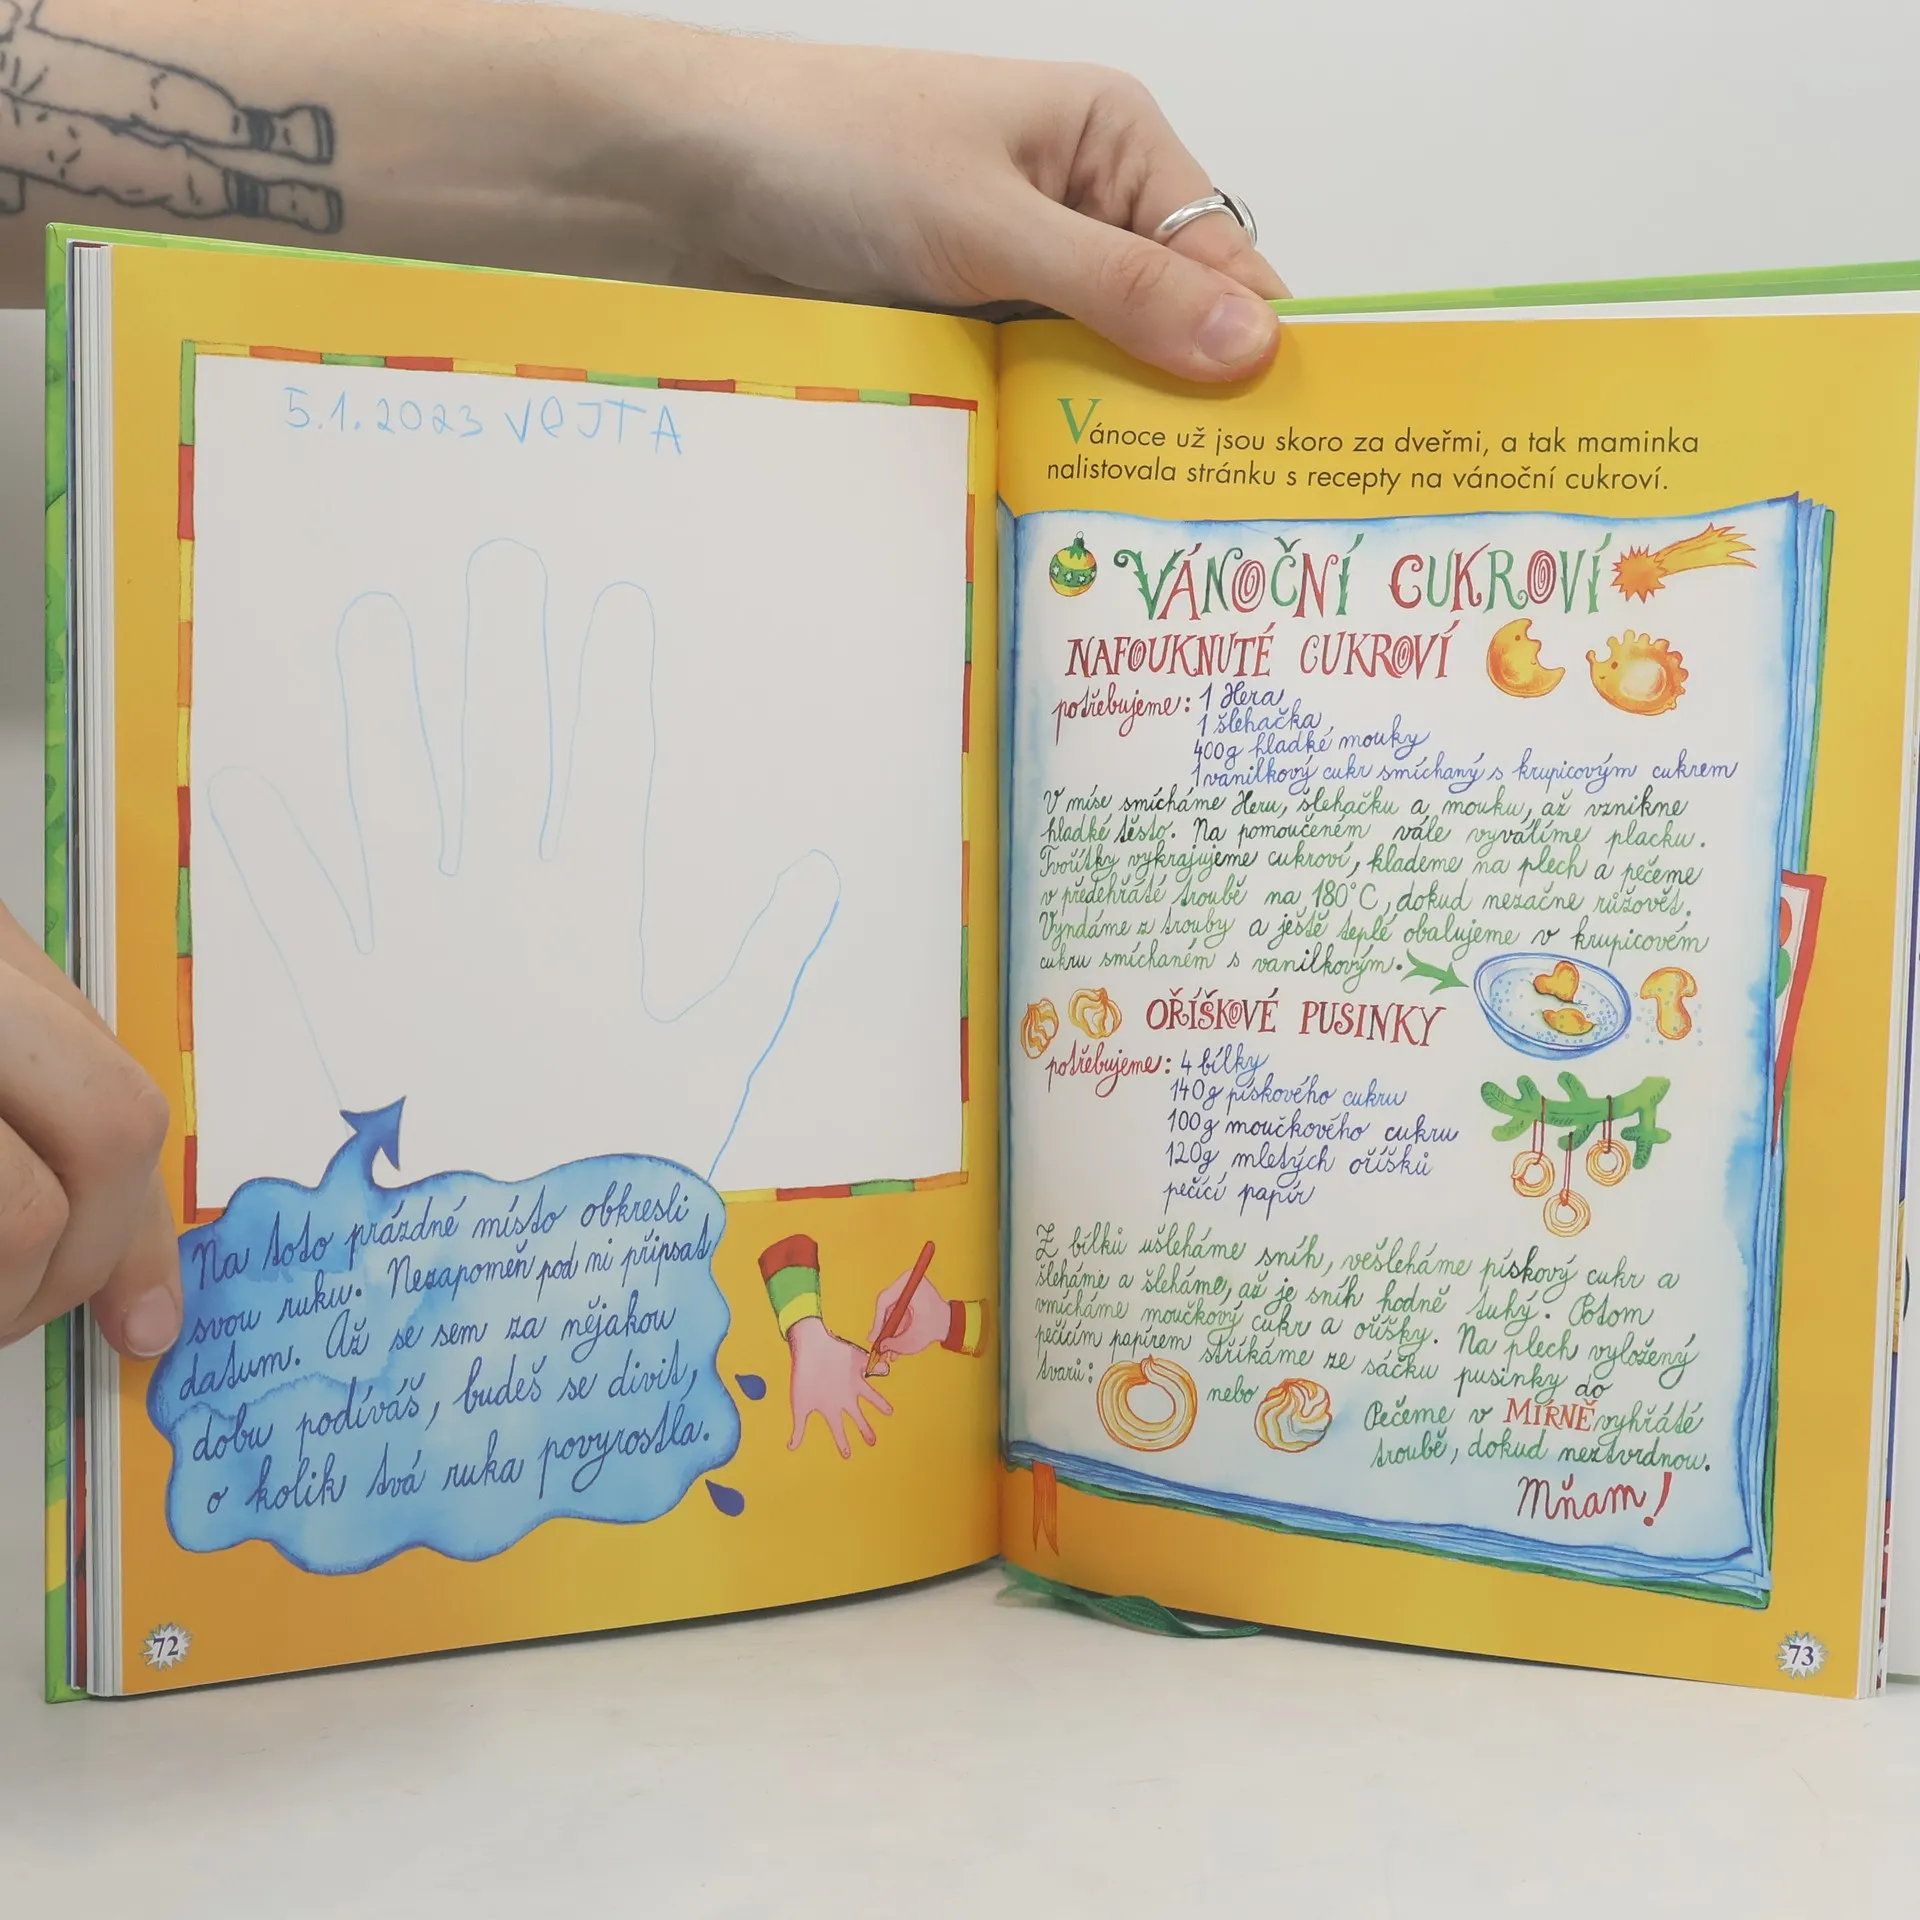 5.1.2023 VOJTA
Na toto prázdné místo obkresli
svou ruku. Nezapomeň pod ni připsat
datum. Až se sem za nějakou
dobu podíváš, budeš se divit,
o kolik tvá ruka povyrostla.
72
Vánoce už jsou skoro za dveřmi, a tak maminka
nalistovala stránku s recepty na vánoční cukroví.
VÁNOČNÍ CUKROVÍ
NAFOUKNUTÉ CUKROVÍ
potřebujeme: 1 Hera
1 šlehačka
400g hladké mouky
1 vanilkový cukr smíchaný s krupicovým cukrem
V míse smícháme Heru, šlehačku a mouku, až vznikne
hladké těsto. Na pomoučeném vále vyválíme placku.
Tvořítky vykrajujeme cukroví, klademe na plech a pečeme
v předehřáté troubě na 180°C, dokud nezačne růžovět.
Vyndáme z trouby a ještě teplé obalujeme v krupicovém
cukru smíchaném s vanilkovým.
OŘÍŠKOVÉ PUSINKY
potřebujeme: 4 bílky
140g pískového cukru
100g moučkového cukru
120g mletých oříšků
pečící papír
Z bílků ušleháme sníh, vešleháme pískový cukr a
šleháme a šleháme, až je sníh hodně tuhý. Potom
vmícháme moučkový cukr a oříšky. Na plech vyložený
pečícím papírem stříkáme ze sáčku pusinky do
tvarů: nebo
Pečeme v MÍRNĚ vyhřáté
troubě, dokud neztvrdnou.
Mňam!
73